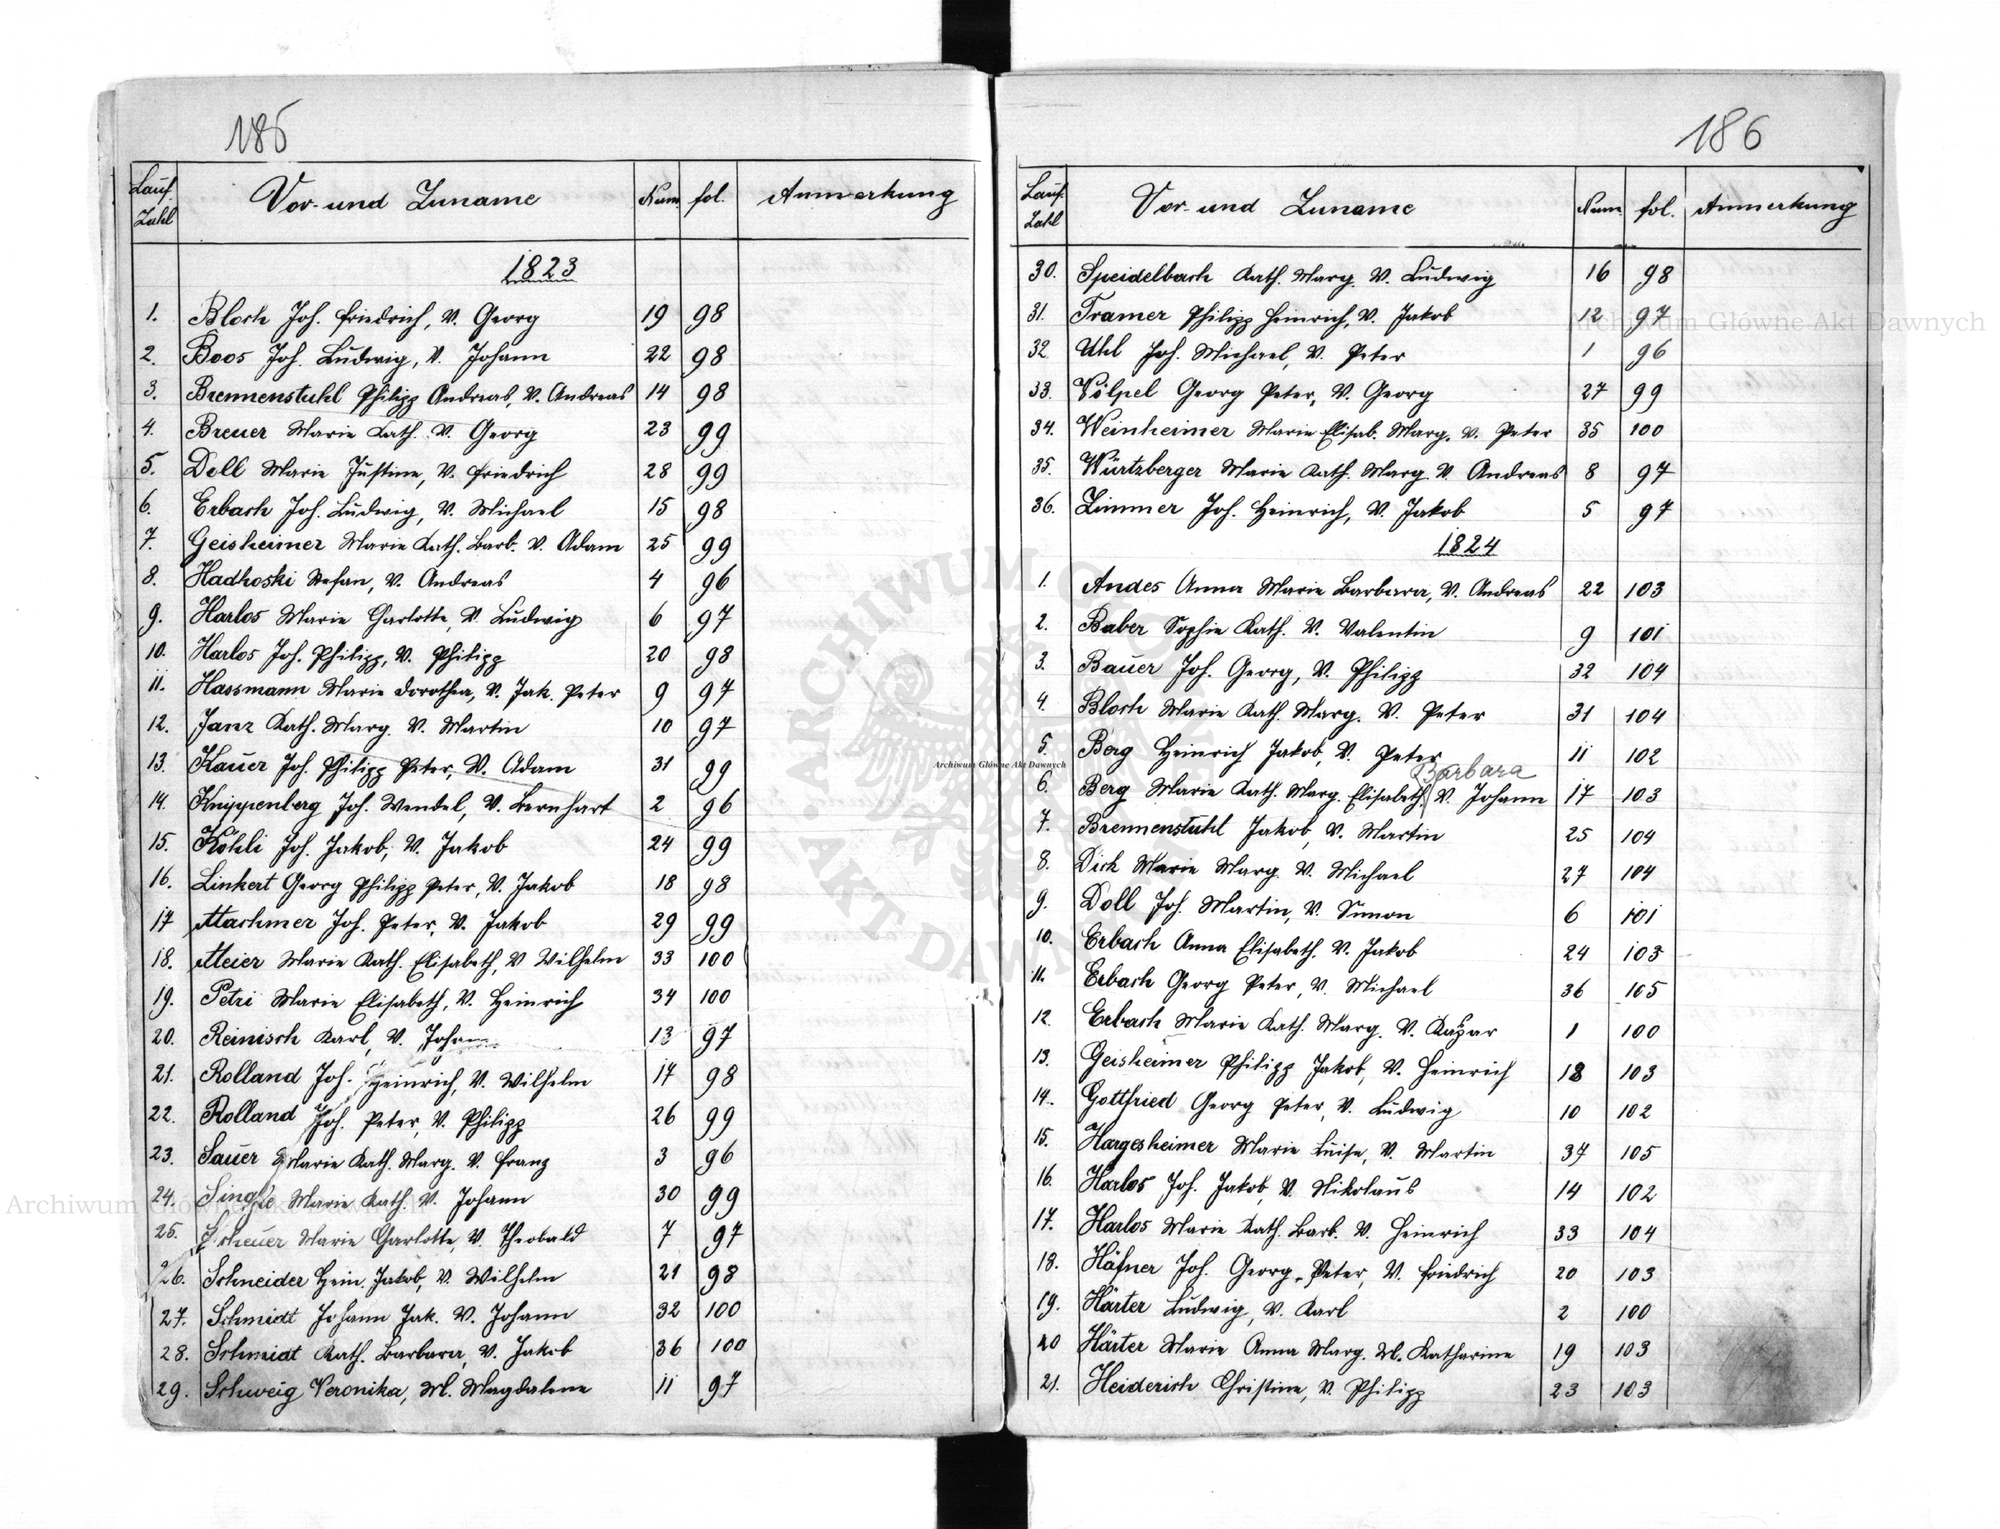 185
Lauf. Zahl Vor- und Zuname Num. fol. Anmerkung
1823
1. Bloch Joh. Friedrich, V. Georg 19 98
2. Boos Joh. Ludwig, V. Johann 22 98
3. Brennenstuhl Philipp Andreas, V. Andreas 14 98
4. Breuer Marie Kath. V. Georg 23 99
5. Doll Marie Justine, V. Friedrich 28 99
6. Erbach Joh. Ludwig, V. Michael 15 98
7. Geisheimer Marie Kath. Barb. V. Adam 25 99
8. Hadhoski Stefan, V. Andreas 4 96
9. Harlos Marie Charlotte, V. Ludwig 6 97
10. Harlos Joh. Philipp, V. Philipp 20 98
11. Hassmann Marie Dorothea, V. Jak. Peter 9 97
12. Janz Kath. Marg. V. Martin 10 97
13. Kauer Joh. Philipp Peter, V. Adam 31 99
14. Knippenberg Joh. Wendel, V. Bernhart 2 96
15. Köhli Joh. Jakob, V. Jakob 24 99
16. Linkert Georg Philipp Peter, V. Jakob 18 98
17 Machmer Joh. Peter, V. Jakob 29 99
18. Meier Marie Kath. Elisabeth, V Wilhelm 33 100
19. Petri Marie Elisabeth, V. Heinrich 34 100
20. Reinisch Karl, V. Johann 13 97
21. Rolland Joh. Heinrich, V. Wilhelm 17 98
22. Rolland Joh. Peter, V. Philipp 26 99
23. Sauer Marie Kath. Marg. V. Franz 3 96
24. Single Marie Kath. V. Johann 30 99
25. Scheuer Marie Charlotte, V. Theobald 7 97
26. Schneider Hein. Jakob, V. Wilhelm 21 98
27. Schmidt Johann Jak. V. Johann 32 100
28. Schmidt Kath. Barbara, V. Jakob 36 100
29. Schweig Veronika, M. Magdalene 11 97
186
Lauf. Zahl Vor- und Zuname Num. fol. Anmerkung
30. Speidelbach Kath. Marg. V. Ludwig 16 98
31. Tramer Philipp Heinrich, V. Jakob 12 97
32. Uhl Joh. Michael, V. Peter 1 96
33. Völpel Georg Peter, V. Georg 27 99
34. Weinheimer Marie Elisab. Marg. V. Peter 35 100
35. Würtzberger Marie Kath. Marg. V. Andreas 8 97
36. Zimmer Joh. Heinrich, V. Jakob 5 97
1824
1. Andes Anna Marie Barbara, V. Andreas 22 103
2. Baber Sophie Kath. V. Valentin 9 101
3. Bauer Joh. Georg, V. Philipp 32 104
4. Bloch Marie Kath. Marg. V. Peter 31 104
5. Berg Heinrich Jakob, V. Peter 11 102
Barbara
6. Berg Marie Kath. Marg. Elisabeth V. Johann 17 103
7. Brennenstuhl Jakob, V. Martin 25 104
8. Dick Marie Marg. V. Michael 27 104
9. Doll Joh. Martin, V. Simon 6 101
10. Erbach Anna Elisabeth. V. Jakob 24 103
11. Erbach Georg Peter, V. Michael 36 105
12. Erbach Marie Kath. Marg. V. Kaspar 1 100
13. Geisheimer Philipp Jakob, V. Heinrich 18 103
14. Gottfried Georg Peter, V. Ludwig 10 102
15. Hargesheimer Marie Luise, V. Martin 37 105
16. Harlos Joh. Jakob, V. Nikolaus 14 102
17. Harlos Marie Kath. Barb. V. Heinrich 33 104
18. Häfner Joh. Georg Peter, V. Friedrich 20 103
19. Härter Ludwig, V. Karl 2 100
20 Härter Marie Anna Marg. M. Katharine 19 103
21. Heiderich Christine, V. Philipp 23 103
Archiwum Główne Akt Dawnych
Archiwum Główne Akt Dawnych
Archiwum Główne Akt Dawnych